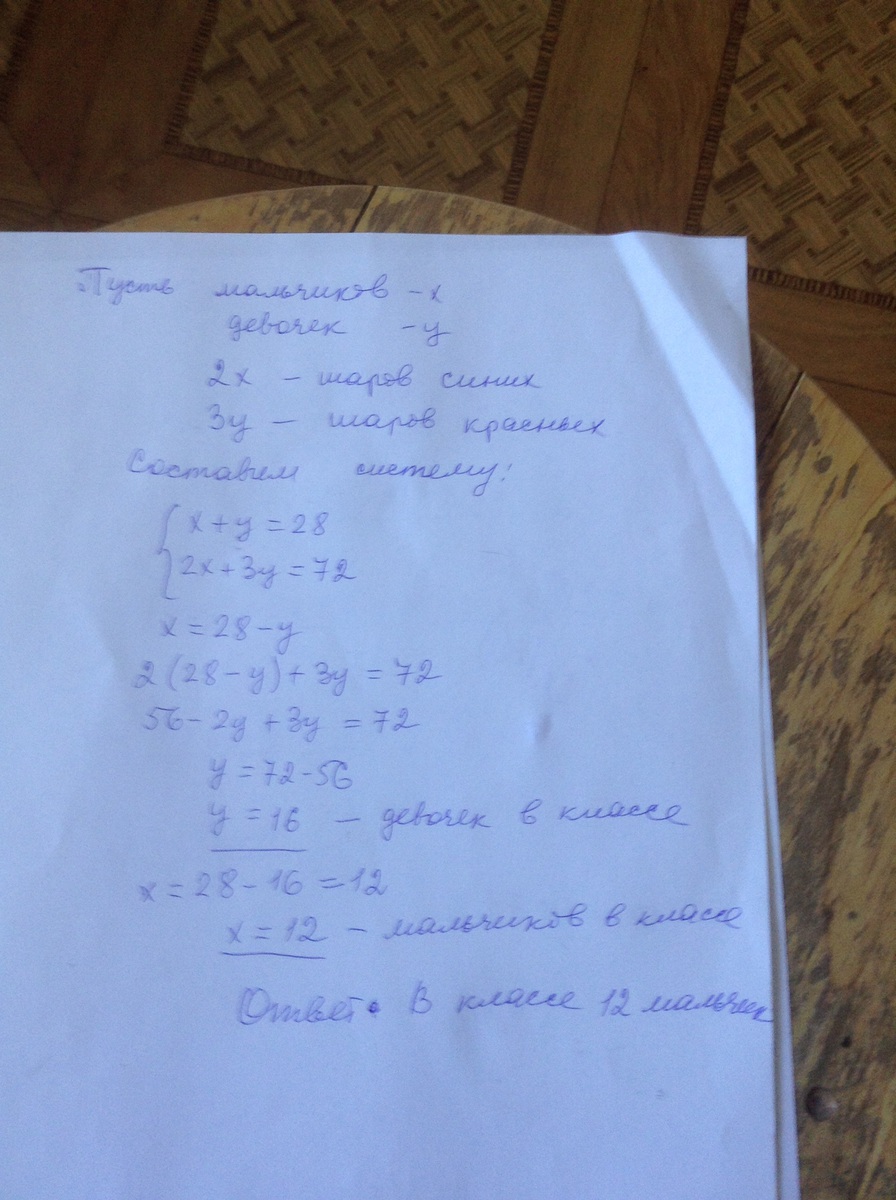 Пусть мальчиков - x
девочек - y
2x - шаров синих
3y - шаров красных
Составим систему:
x + y = 28
2x + 3y = 72
x = 28 - y
2(28 - y) + 3y = 72
56 - 2y + 3y = 72
y = 72 - 56
y = 16 - девочек в классе
x = 28 - 16 = 12
x = 12 - мальчиков в классе
Ответ: В классе 12 мальчик